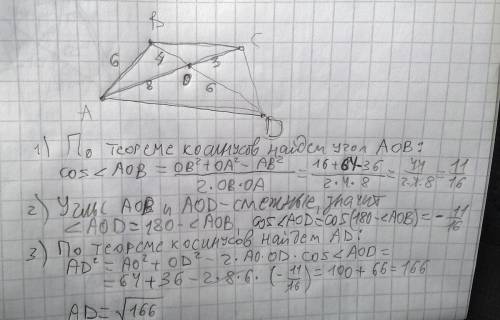 B
C
6
4
3
O
8
6
A
D
1) По теореме косинусов найдем угол AOB:
cos∠AOB = (OB² + OA² - AB²)/(2·OB·OA) = (16+64-36)/(2·4·8) = 44/(2·4·8) = 11/16
2) Углы AOB и AOD - смежные, значит
∠AOD = 180 - ∠AOB, cos∠AOD = cos(180 - ∠AOB) = - 11/16
3) По теореме косинусов найдем AD:
AD² = AO² + OD² - 2·AO·OD·cos∠AOD =
= 64 + 36 - 2·8·6·(-11/16) = 100 + 66 = 166
AD = √166